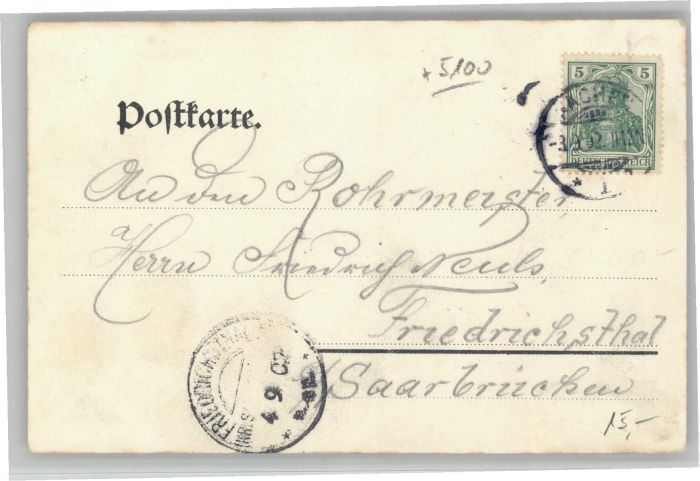 +5/00
5 5
AACHEN
-3.9.02
DEUTSCHES REICH
* 1
Postkarte.
An den Rohrmeister,
Herrn Friedrich Neuls,
Friedrichsthal
b/Saarbrücken
FRIEDRICHSTHAL
4 9 02
15,-